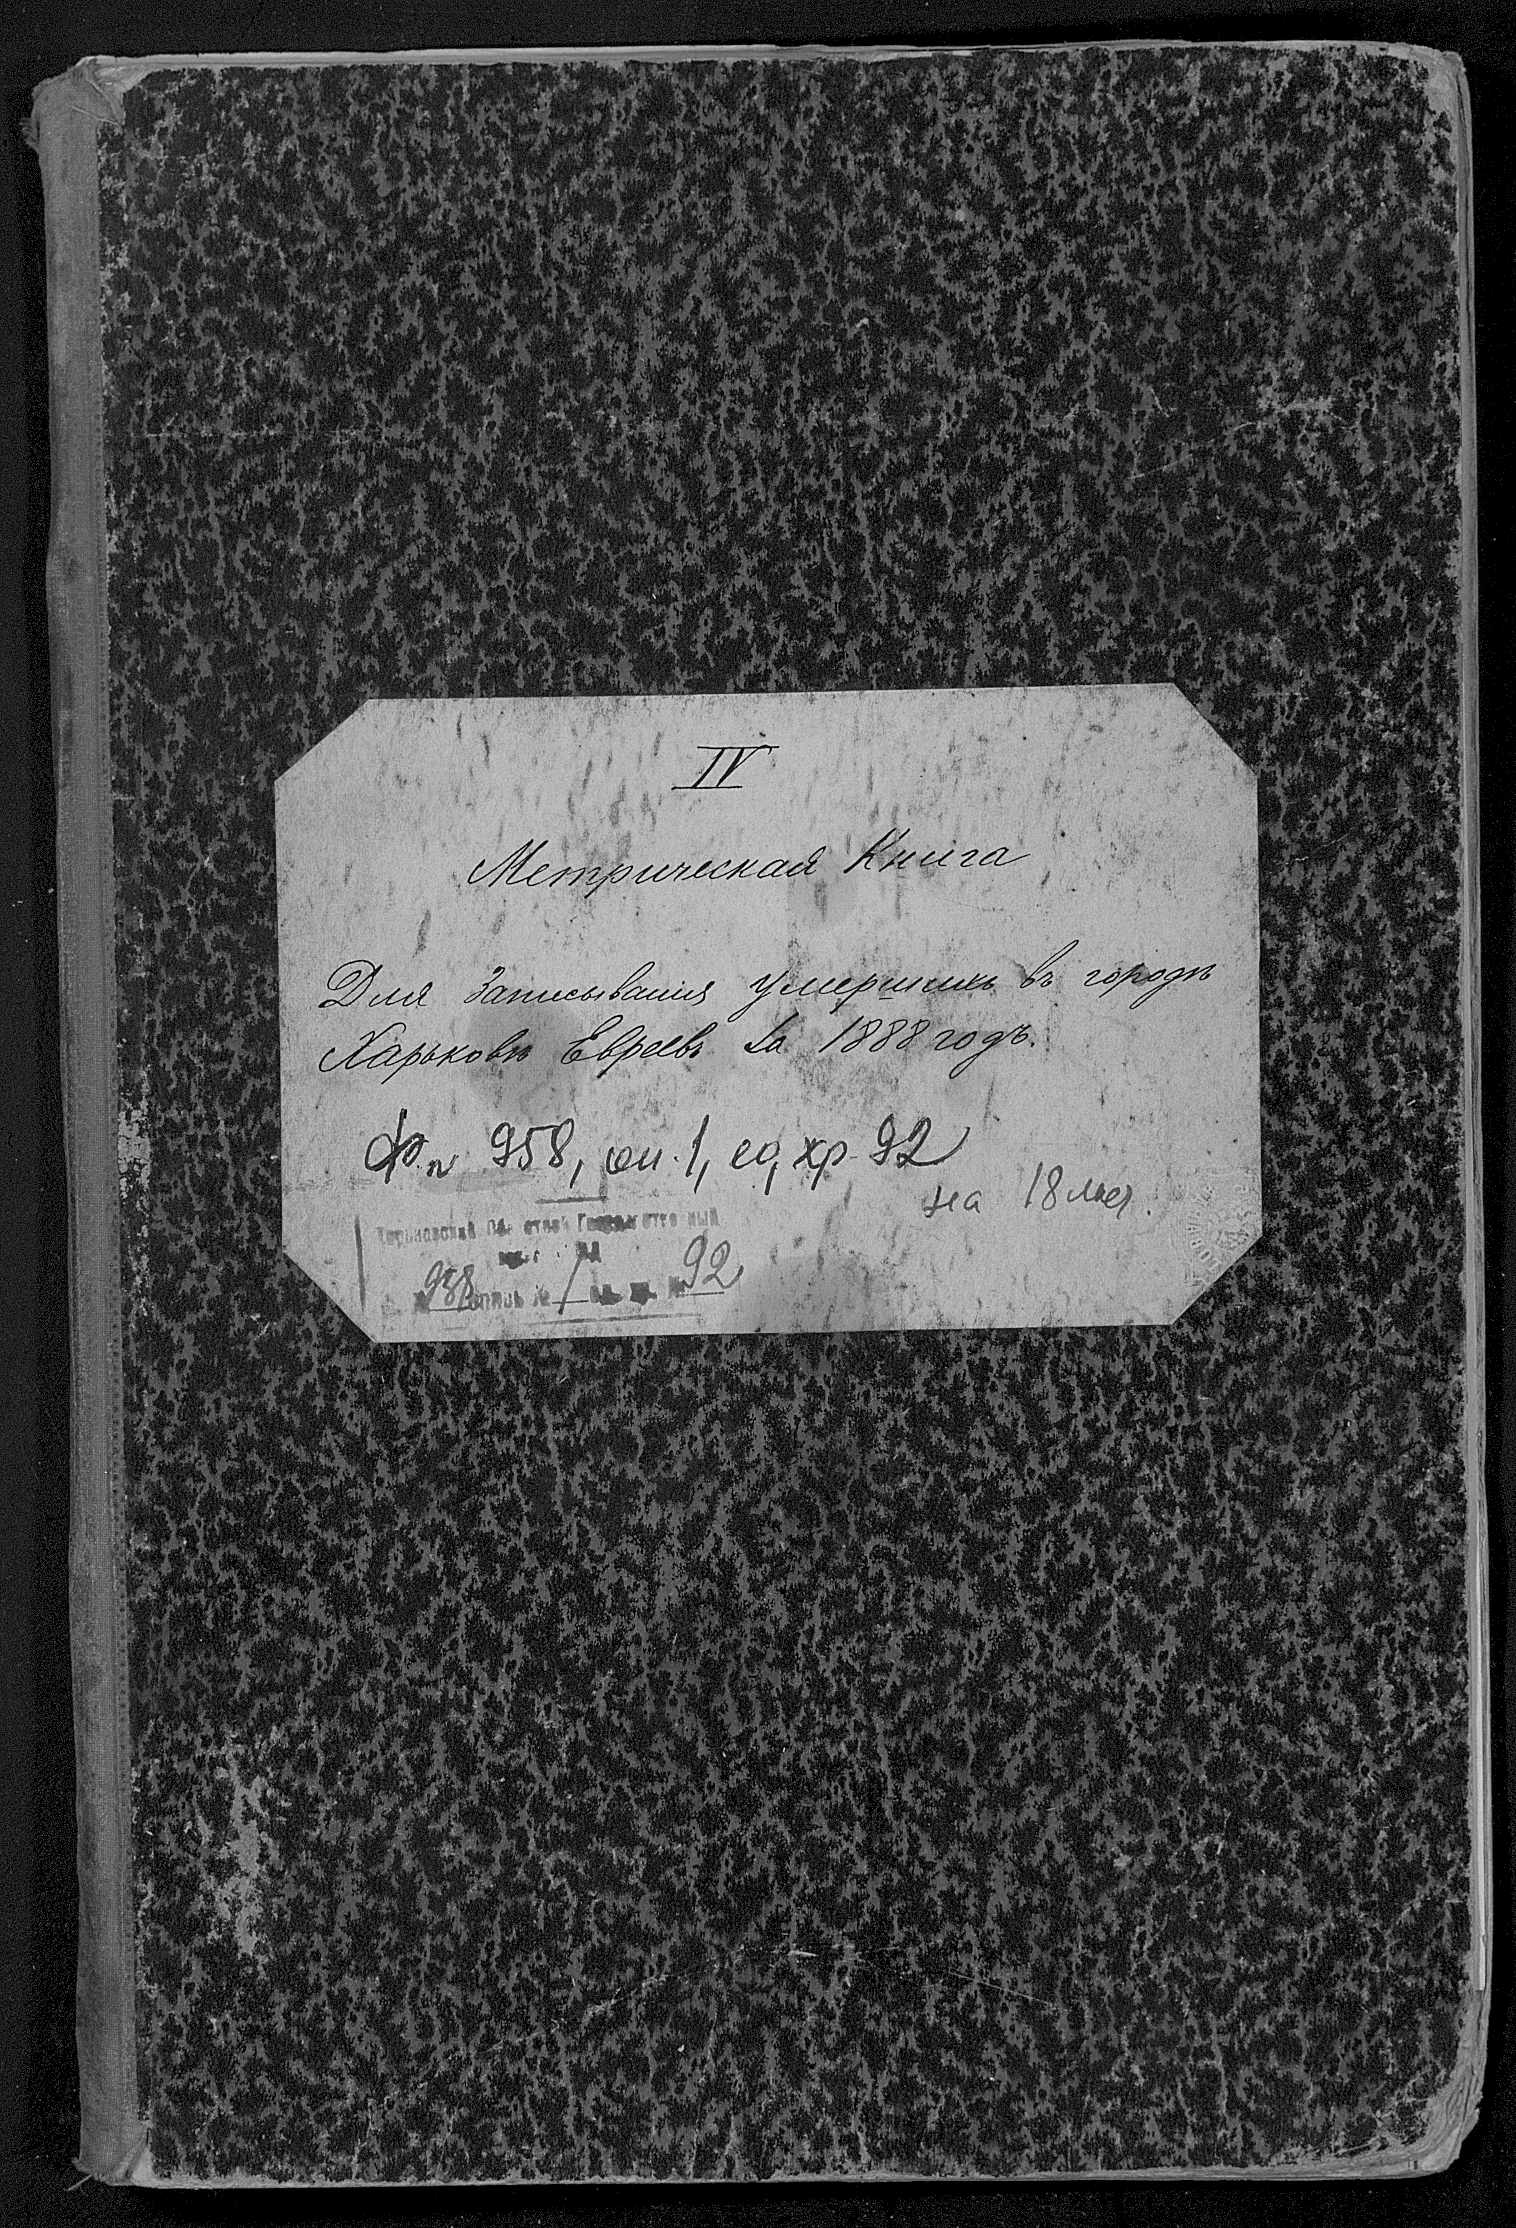 IV
Метрическая Книга
Для Записыванія умершихъ въ городѣ
Харьковѣ Евреевъ за 1888 годъ.
Ф. 958, оп. 1, ед, хр. 92
на 18 лист.
Харьковский Областной Государственный
958 опись № 1 ед. хр. № 92